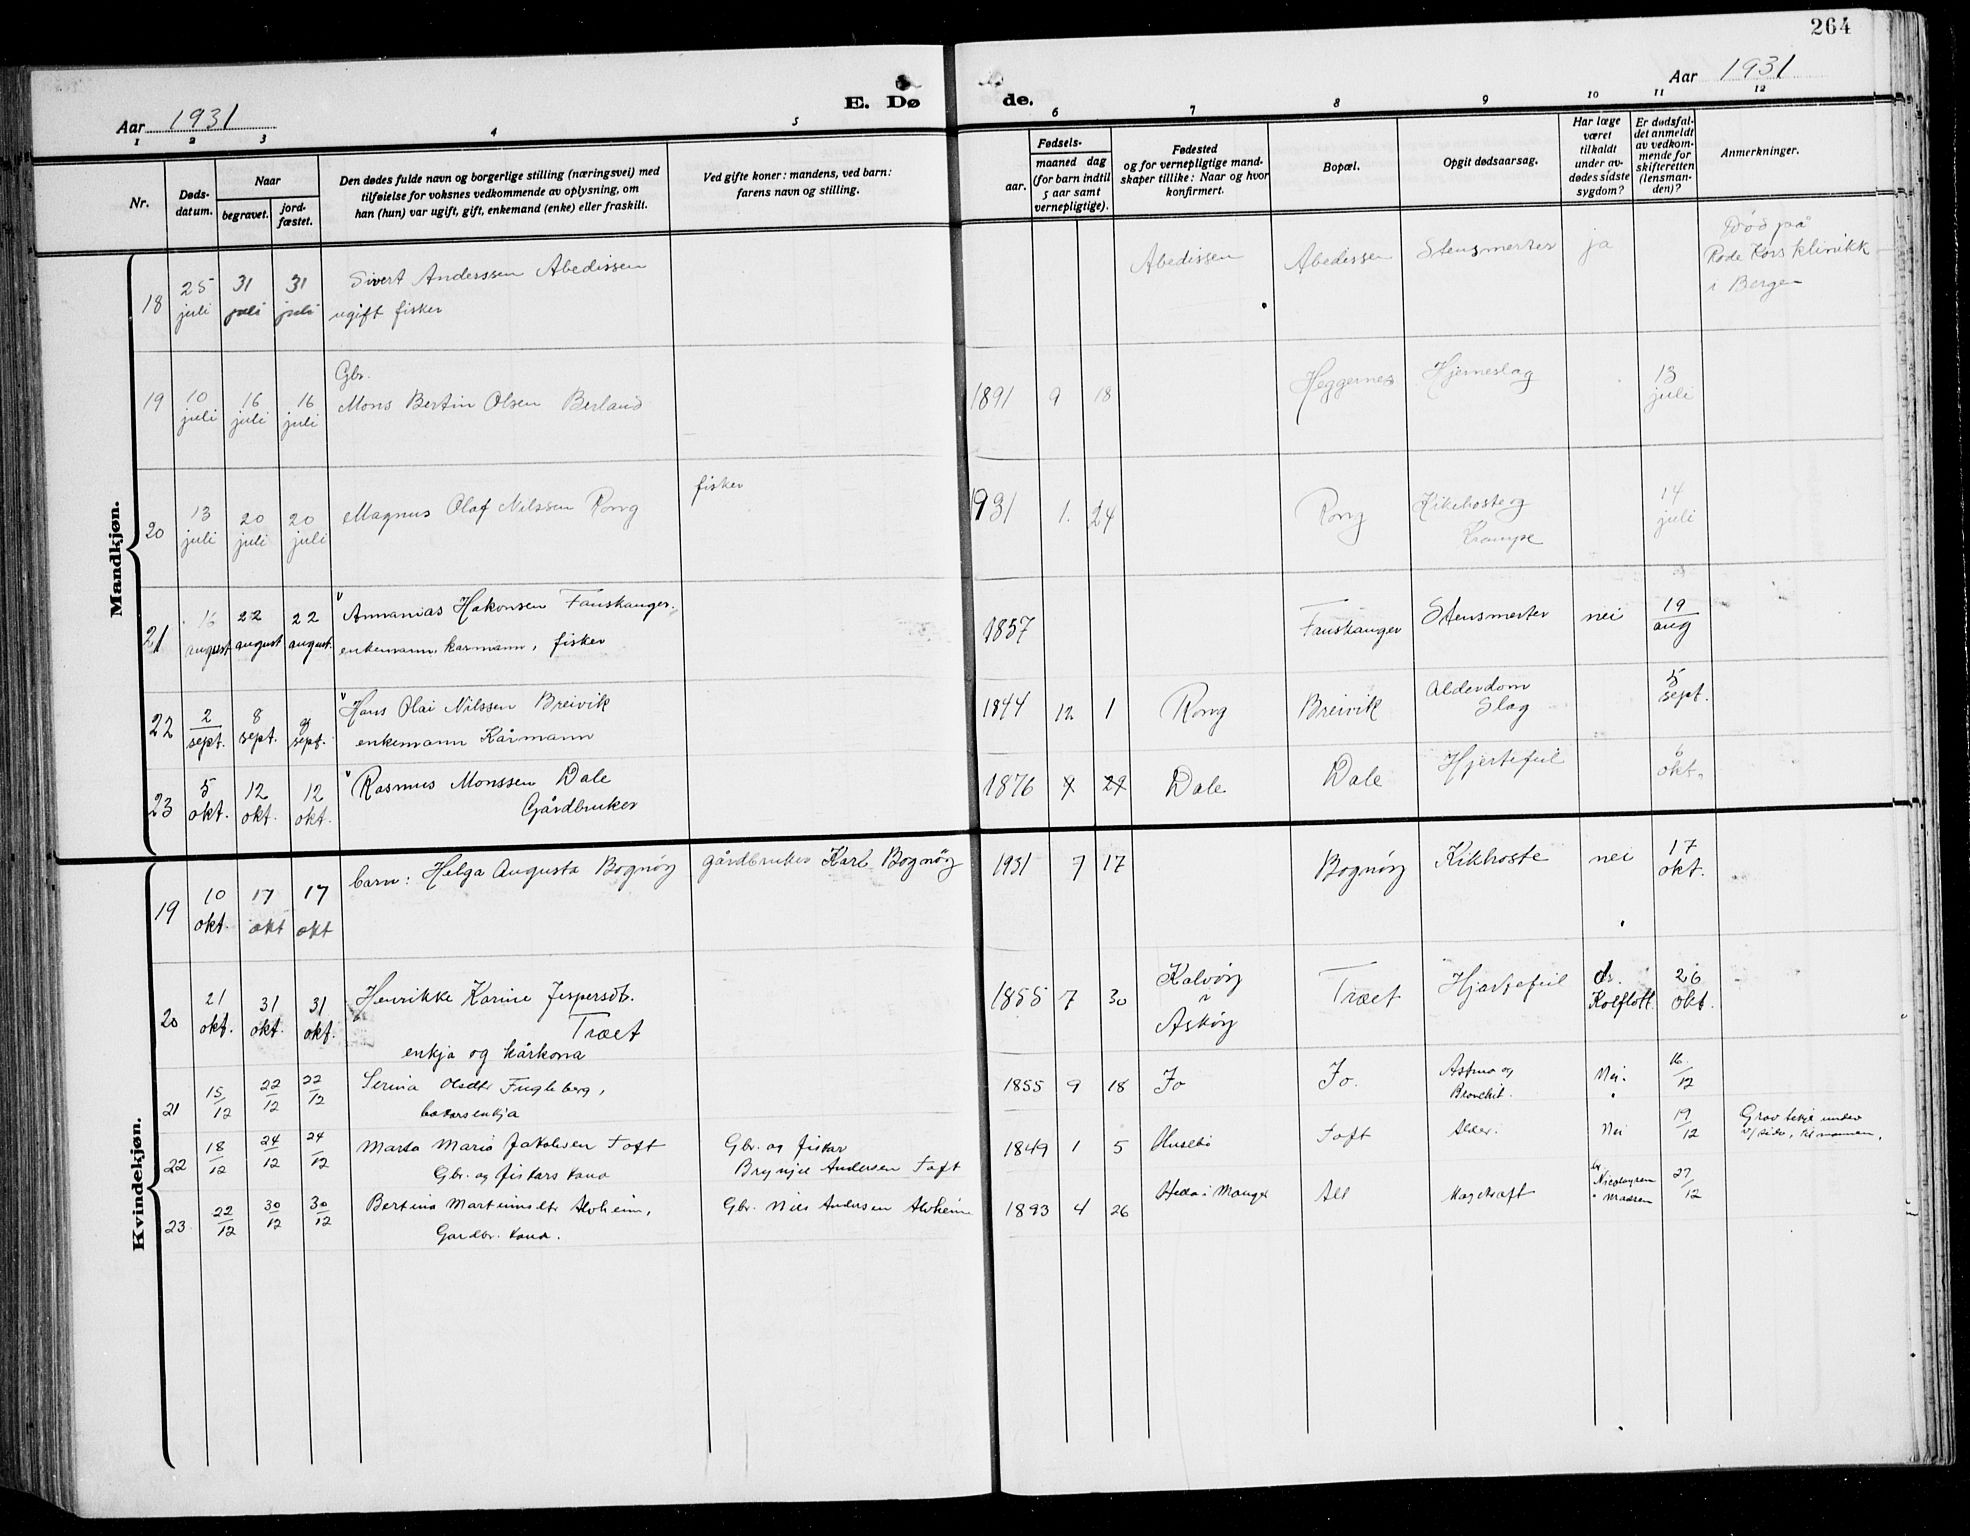 264
Aar 1931
E. Døde.
Aar 1931
1 2 3 4 5 6 7 8 9 10 11 12
Nr.
Døds-
datum.
Naar
begravet.
jord-
fæstet.
Den dødes fulde navn og borgerlige stilling (næringsvei) med
tilføielse for voksnes vedkommende av oplysning, om
han (hun) var ugift, gift, enkemand (enke) eller fraskilt.
Ved gifte koner: mandens, ved barn:
farens navn og stilling.
Fødsels-
aar.
maaned dag
(for barn indtil
5 aar samt
vernepligtige).
Fødested
og for vernepligtige mand-
skaper tillike: Naar og hvor
konfirmert.
Bopæl.
Opgit dødsaarsag.
Har læge
været
tilkaldt
under av-
dødes sidste
sygdom?
Er dødsfal-
det anmeldt
av vedkom-
mende for
skifteretten
(lensman-
den)?
Anmerkninger.
Mandkjøn.
18 25 juli 31 juli 31 juli Sivert Anderssen Abedissen
ugift fisker
Abedissen Abedissen Stensmerter ja Død på
Røde Kors klinikk
i Bergen
19 10 juli 16 juli 16 juli Gbr.
Mons Bertin Olsen Berland
1891 9 18 Heggernes Hjerneslag 13 juli
20 13 juli 20 juli 20 juli Magnus Olaf Nilssen Rong fisker
1931 1. 24 Rong Kikehoste og
Krampe 14 juli
21 16 august 22 august 22 august. Annanias Hakonsen Fauskanger.
enkemann, karmann, fisker
1857 Fauskanger Stensmerter nei 19 aug
22 2 sept. 8 sept. 8 sept. Hans Olai Nilssen Breivik
enkemann Kårmann
1844 12 1 Rong Breivik Alderdom
Slag 5 sept.
23 5 okt. 12 okt. 12 okt. Rasmus Monssen Dale
Gårdbruker
1876 29 Dale Dale Hjertefeil okt.
Kvindekjøn.
19 10 okt. 17 okt 17 okt barn: Helga Augusta Bognøy gårdbruker Karl Bognøy
1931 7 17 Bognøy Kikhoste nei 17 okt.
20 21 okt. 31 okt. 31 okt. Henrikke Karine Jespersdtr.
Træet
enkja og kårkona
1855 7 30 Kalvøy
i
Askøy Træet Hjartefeil dr.
Kolflott. 26 okt.
21 15/12 22/12 22/12 Serina Olsdtr Fugleberg,
1855 9 18 Io Io. Astma og
Bronchit. Nei. 16/12
22 18/12 24/12 24/12 Marta Maria Jakobsen Toft Gbr. og fiskar
Gbr. og fiskars kona Brynjel Andersen Toft
1849 1 5 Husebø Toft Alder. Nei 19/12 Grav
23. 22/12 30/12 30/12 Bertina Martinusdtr Alvheim, Gbr. Nils Andersen Alvheim
Gardbr. kona.
1893 4 26 i Manger Magekræft 27/12